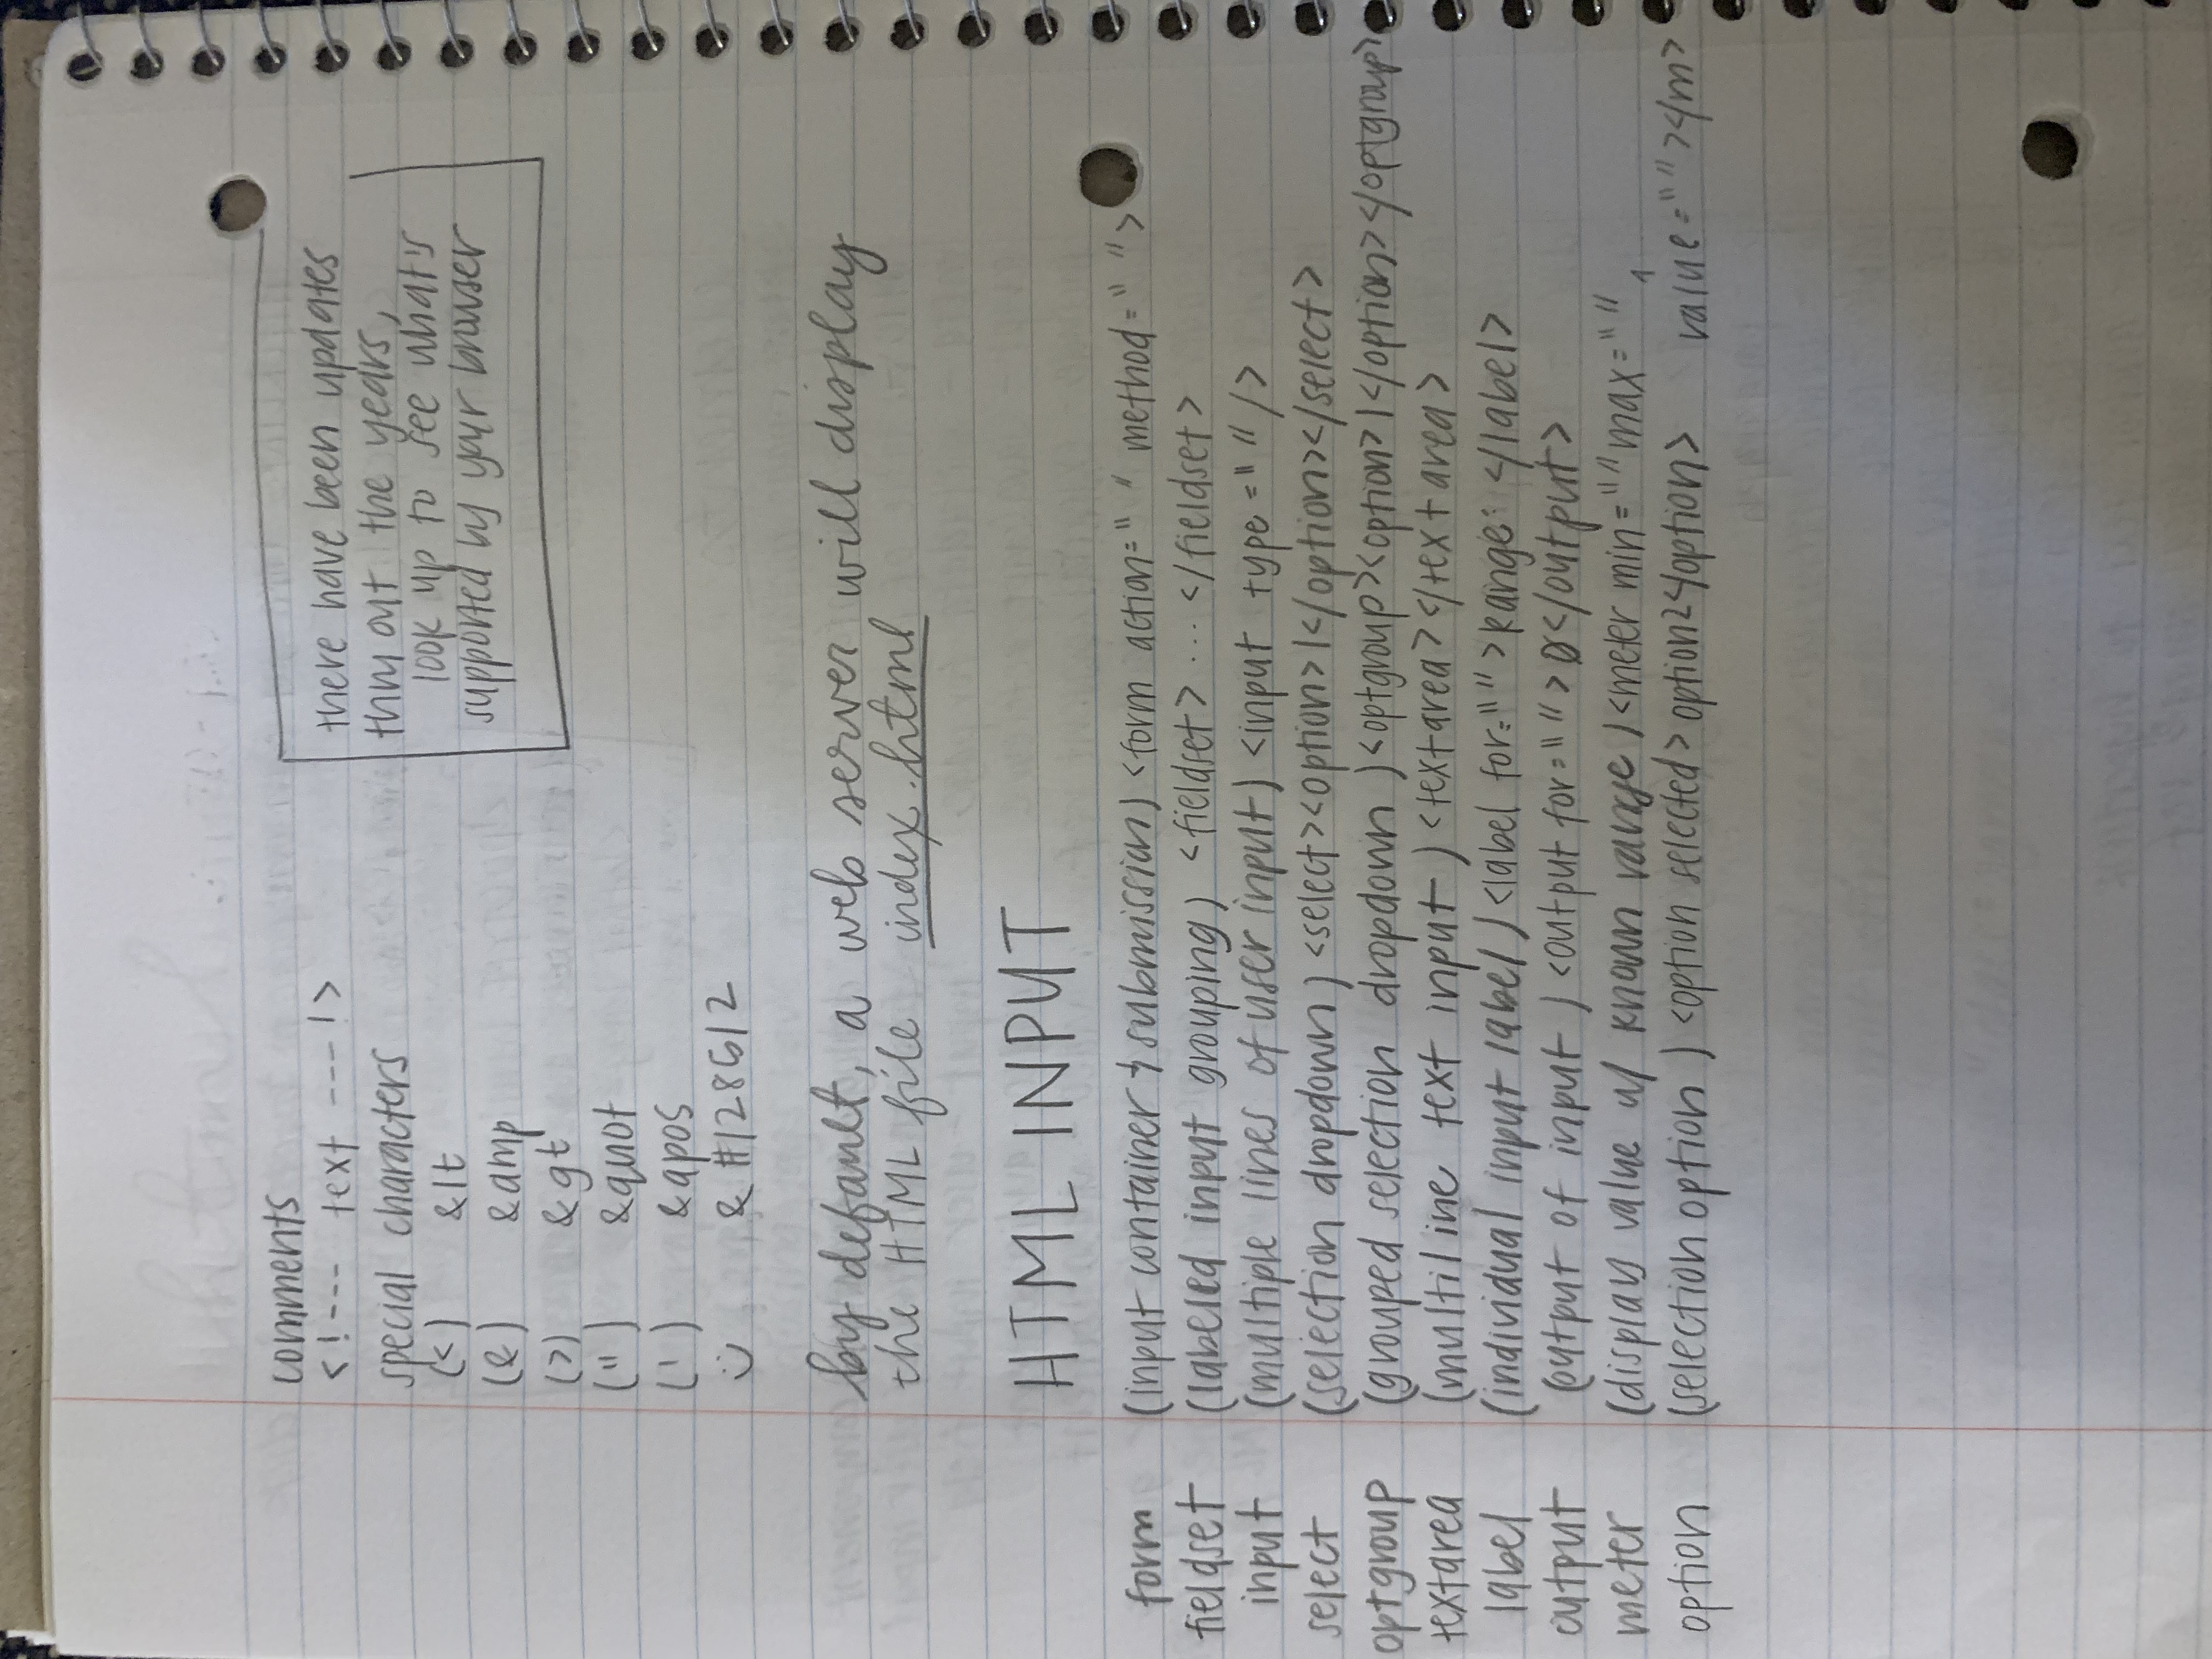 comments
<!--- text ---!>
special characters
(<) &lt
(&) &amp
(>) &gt
(") &quot
(') &apos
&#128512
there have been updates
thru out the years,
look up to see what's
supported by your browser
by default, a web server will display
the HTML file index.html
HTML INPUT
form (input container & submission) <form action=" " method=" ">
fieldset (labeled input grouping) <fieldset> ... </fieldset>
input (multiple lines of user input) <input type=" " />
select (selection dropdown) <select><option>1</option></select>
optgroup (grouped selection dropdown) <optgroup><option>1</option></optgroup>
textarea (multiline text input) <textarea></textarea>
label (individual input label) <label for=" ">Range: </label>
output (output of input) <output for=" ">0</output>
meter (display value w/ known range) <meter min=" " max=" "
value=" "></m>
option (selection option) <option selected>option2</option>